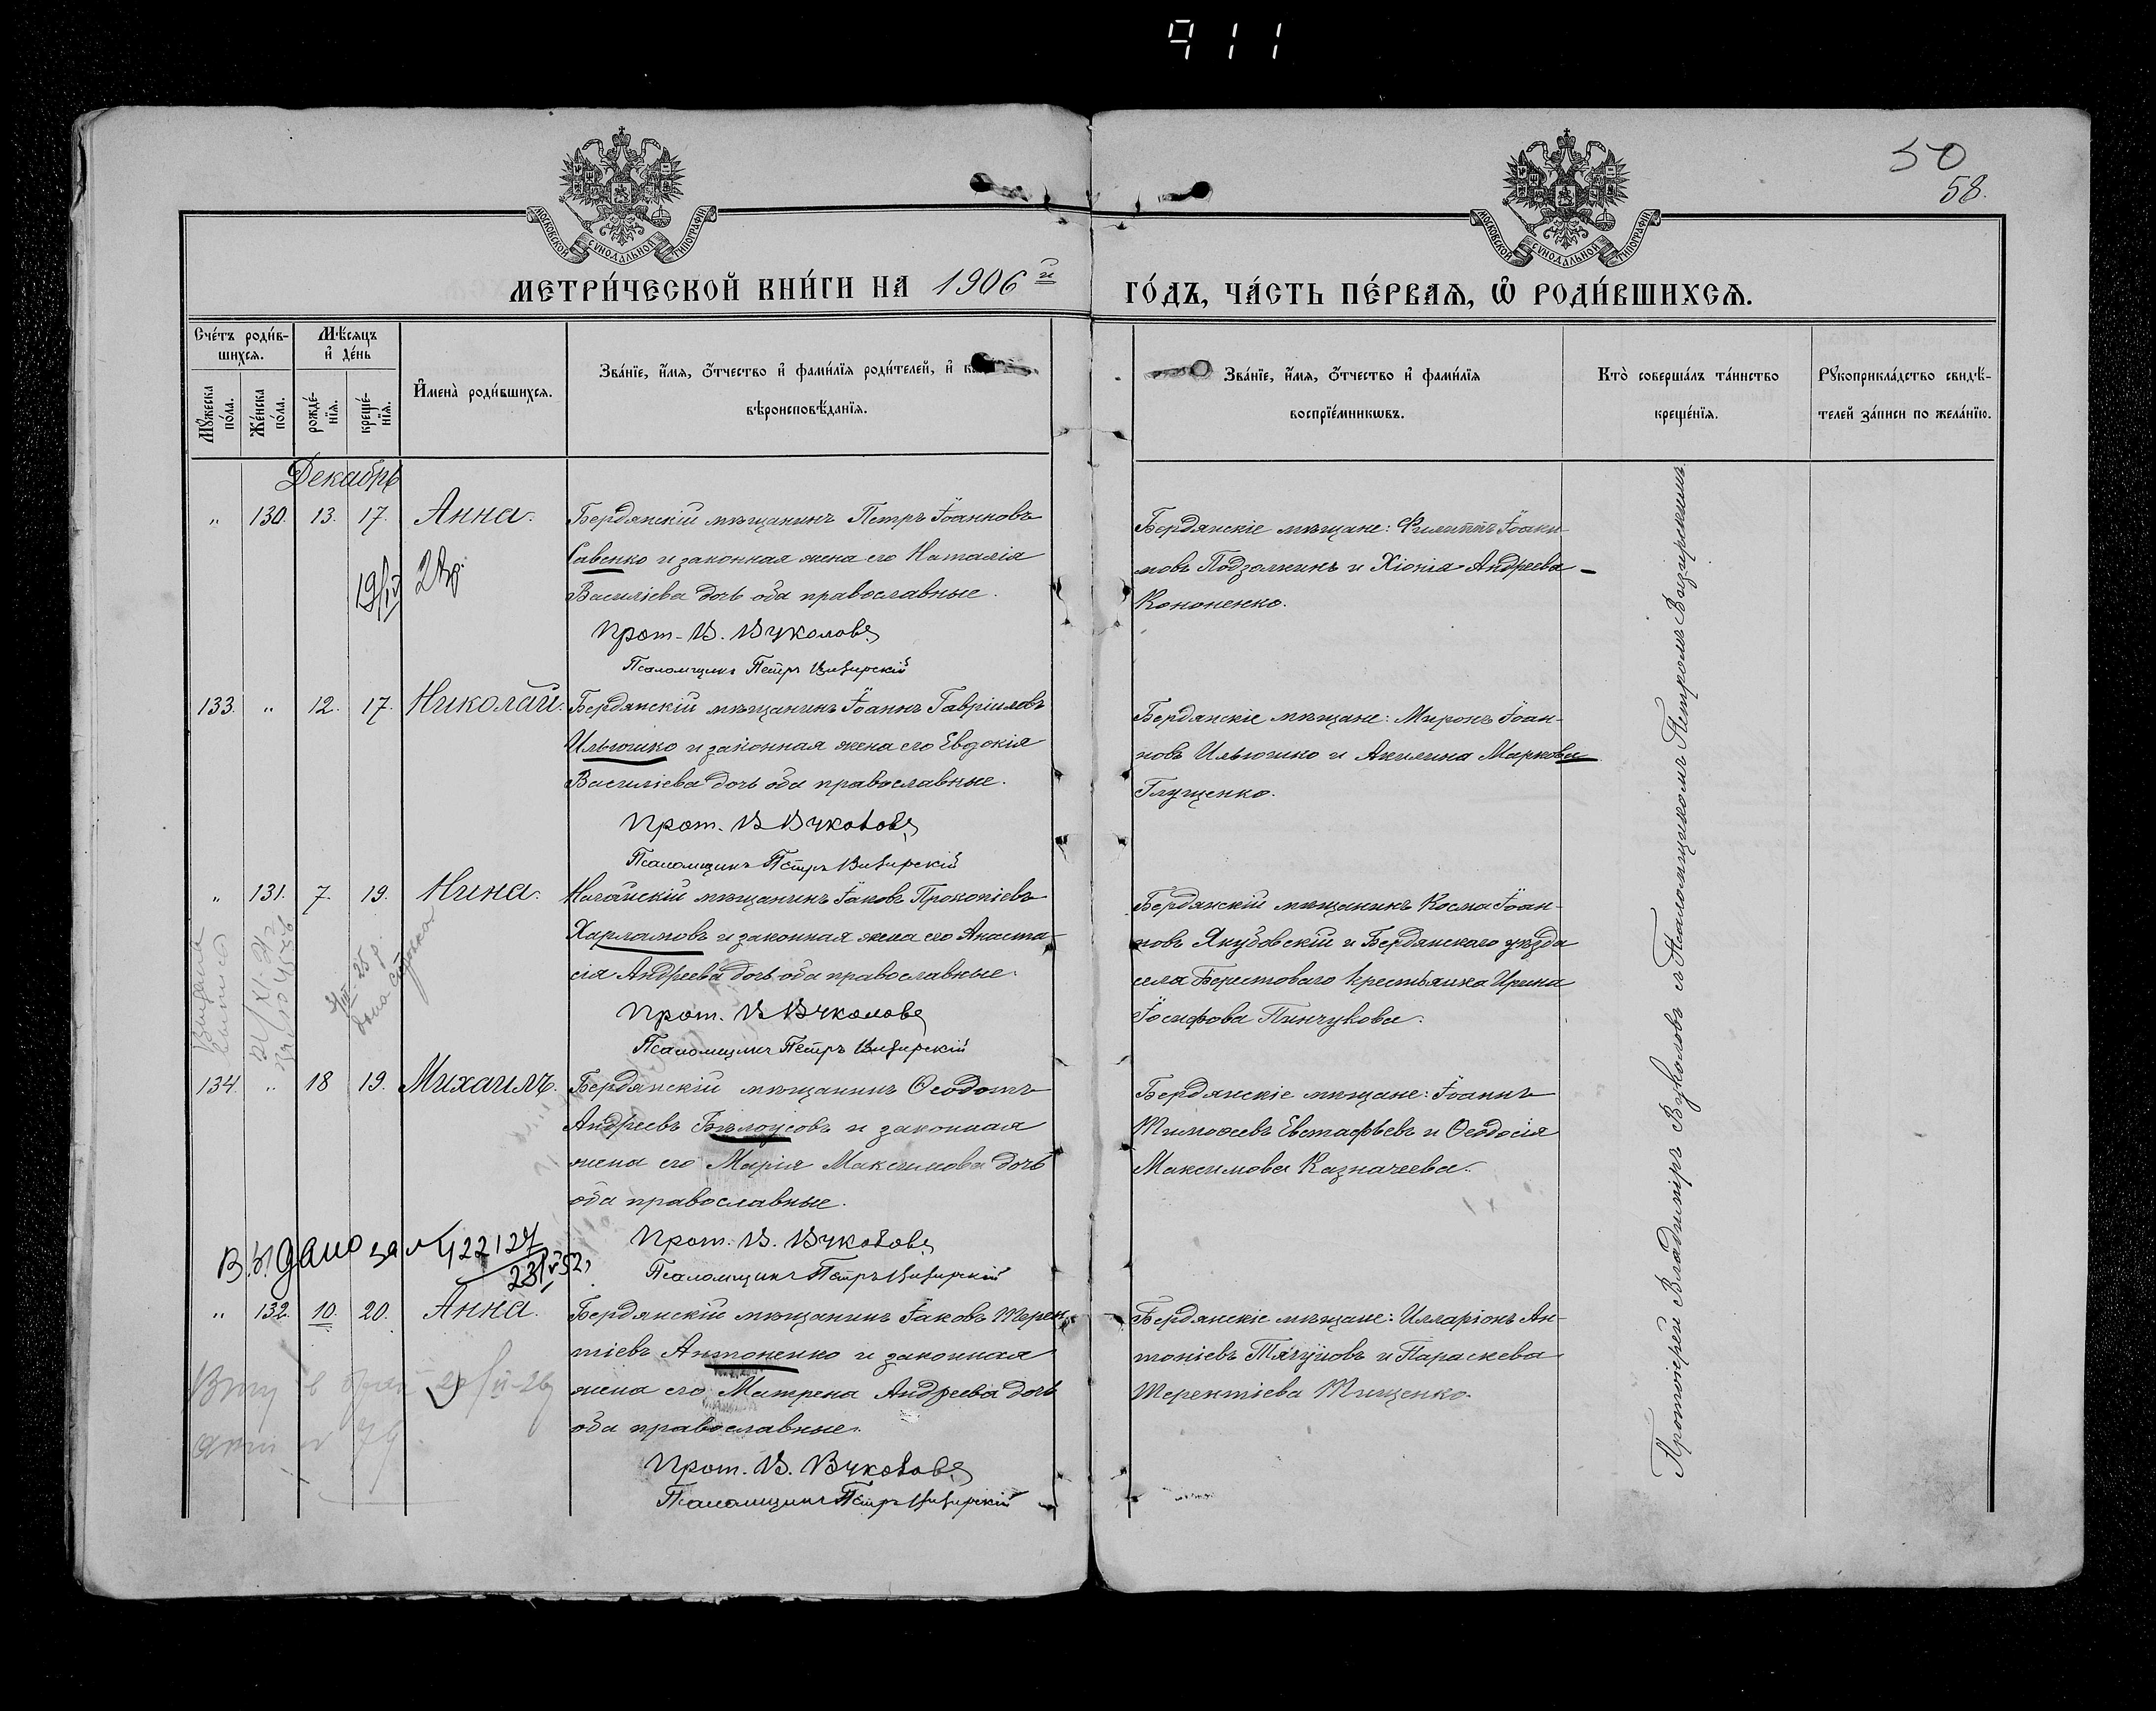 911
50
58.
МОСКОВСКОЙ СУНОДАЛЬНОЙ ТИПОГРАФІИ
МОСКОВСКОЙ СУНОДАЛЬНОЙ ТИПОГРАФІИ
МЕТРИ́ЧЕСКОЙ КНИ́ГИ НА 1906й
ГО́ДЪ, ЧА́СТЬ ПЕ́РВАѦ, Ѽ РОДИ́ВШИХСѦ.
Сче́тъ роди́в-
шихсѧ.
Мꙋ́жеска по́ла.
Же́нска по́ла.
Мѣ́сѧцъ
и҆ де́нь
рожде́-
нїѧ.
креще́-
нїѧ.
И҆мена̀ роди́вшихсѧ.
Зва́нїе, и҆́мѧ, ѻ҆́тчество и҆ фами́лїѧ роди́телей, и҆
вѣроисповѣ́данїѧ.
Зва́нїе, и҆́мѧ, ѻ҆́тчество и҆ фами́лїѧ
воспрїе́мникѡвъ.
Кто̀ соверша́лъ та́инство
креще́нїѧ.
Рꙋкоприкла́дство свидѣ́-
телей за́писи по жела́нїю.
Декабрь
" 130. 13. 17. Анна.
Бердянскій мѣщанинъ Петръ Іоанновъ
Савенко и законная жена его Наталія
Василіева дочь оба православные.
Прот. В. Вуколовъ
Псаломщикъ Петръ
Бердянскіе мѣщане: Филиппъ Іоаки-
мовъ Подзолкинъ и Хіонія Андреева
Кононенко.
133. " 12. 17. Николай.
Бердянскій мѣщанинъ Іоаннъ Гавріиловъ
Ильюшко и законная жена его Евдокія
Василіева дочь оба православные.
Прот. В Вуколовъ
Псаломщикъ Петръ
Бердянскіе мѣщане: Миронъ Іоан-
новъ Ильюшко и Акилина Маркова
Глущенко.
" 131. 7. 19. Нина.
Ногайскій мѣщанинъ Іаковъ Прокопіевъ
Харламовъ и законная жена его Анаста-
сія Андреева дочь оба православные.
Прот. В Вуколовъ
Псаломщикъ Петръ
Бердянскій мѣщанинъ Косма Іоан-
новъ Якубовскій и Бердянскаго уѣзда
села Берестоваго крестьянка Ирина
Іосифова Пинчукова.
134. " 18 19. Михаилъ.
Бердянскій мѣщанинъ Ѳеодотъ
Андреевъ Бѣлоусовъ и законная
жена его Марія Максимова дочь
оба православные.
Прот. В. Вуколовъ
Псаломщикъ Петръ
Бердянскіе мѣщане: Іоаннъ
Тимоѳеевъ Евстафьевъ и Ѳеодосія
Максимова Казначеева.
Выдано за № 422127
" 132. 10. 20. Анна.
Бердянскій мѣщанинъ Іаковъ Терен-
тіевъ Антоненко и законная
жена его Матрена Андреева дочь
оба православные.
Прот. В. Вуколовъ
Псаломщикъ Петръ
Бердянскіе мѣщане: Илларіонъ Ан-
тоніевъ Тягуновъ и Параскева
Терентіева Тищенко.
Протоіерей Владиміръ Вуколовъ съ Псаломщикомъ Петромъ